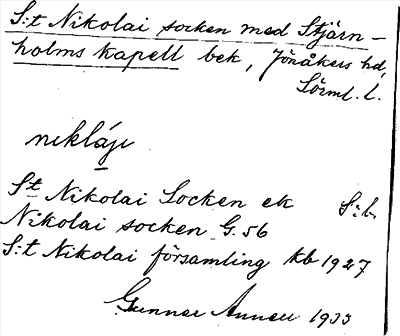 S:t Nikolai socken med Stjärn-
holms kapell bek, Jönåkers hd,
Sörml. l.
nikláji
St Nikolai Socken ek S:b
Nikolai socken G. 56
S:t Nikolai församling kb 1927
Gunnar 1933